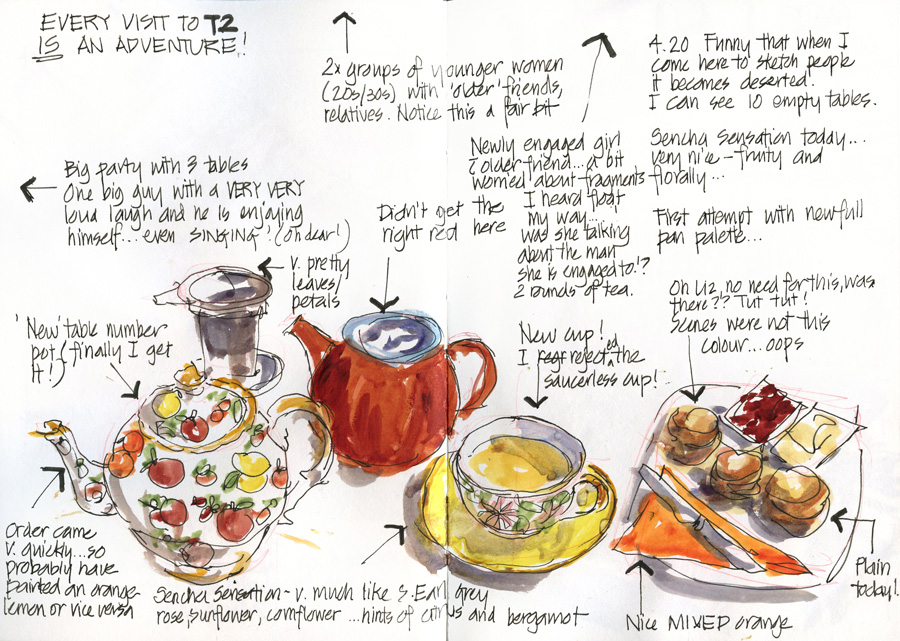 EVERY VISIT TO T2
IS AN ADVENTURE!
2x groups of younger women
(20s/30s) with 'older' friends,
relatives. Notice this a fair bit
4.20 Funny that when I
come here to sketch people
it becomes deserted.
I can see 10 empty tables.
Sencha Sensation today...
very nice - fruity and
florally...
First attempt with new full
pan palette...
Newly engaged girl
older friend... a bit
worried about fragments
I heard float
my way...
was she talking
about the man
she is engaged to!?
2 rounds of tea.
Big party with 3 tables
One big guy with a VERY VERY
loud laugh and he is enjoying
himself... even SINGING! (oh dear!)
Didn't get the
right red here
v. pretty
leaves/
petals
'New' table number
pot (finally I get
it!)
New cup!
I rejected the
saucerless cup!
Oh Liz, no need for this, was
there?? Tut tut!
Scones were not this
colour...oops
Order came
v. quickly...so
probably have
painted an orange
lemon or vice versa
Sencha Sensation - v. much like S. Earl grey
rose, sunflower, cornflower ...hints of citrus and bergamot
Nice MIXED orange
Plain
today!